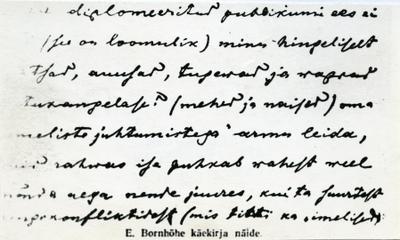 diplomeeritud publikumi ees ei
(see on loomulik) minu hingeliselt
ausad, tugewad ja waprad
(mehed ja naised) oma
juhtumistega" armu leida,
rahwas ise puhkab wahest weel
aega nende juures, kui ta suurtest
(mis tihti ka imelised
E. Bornhöhe käekirja näide.